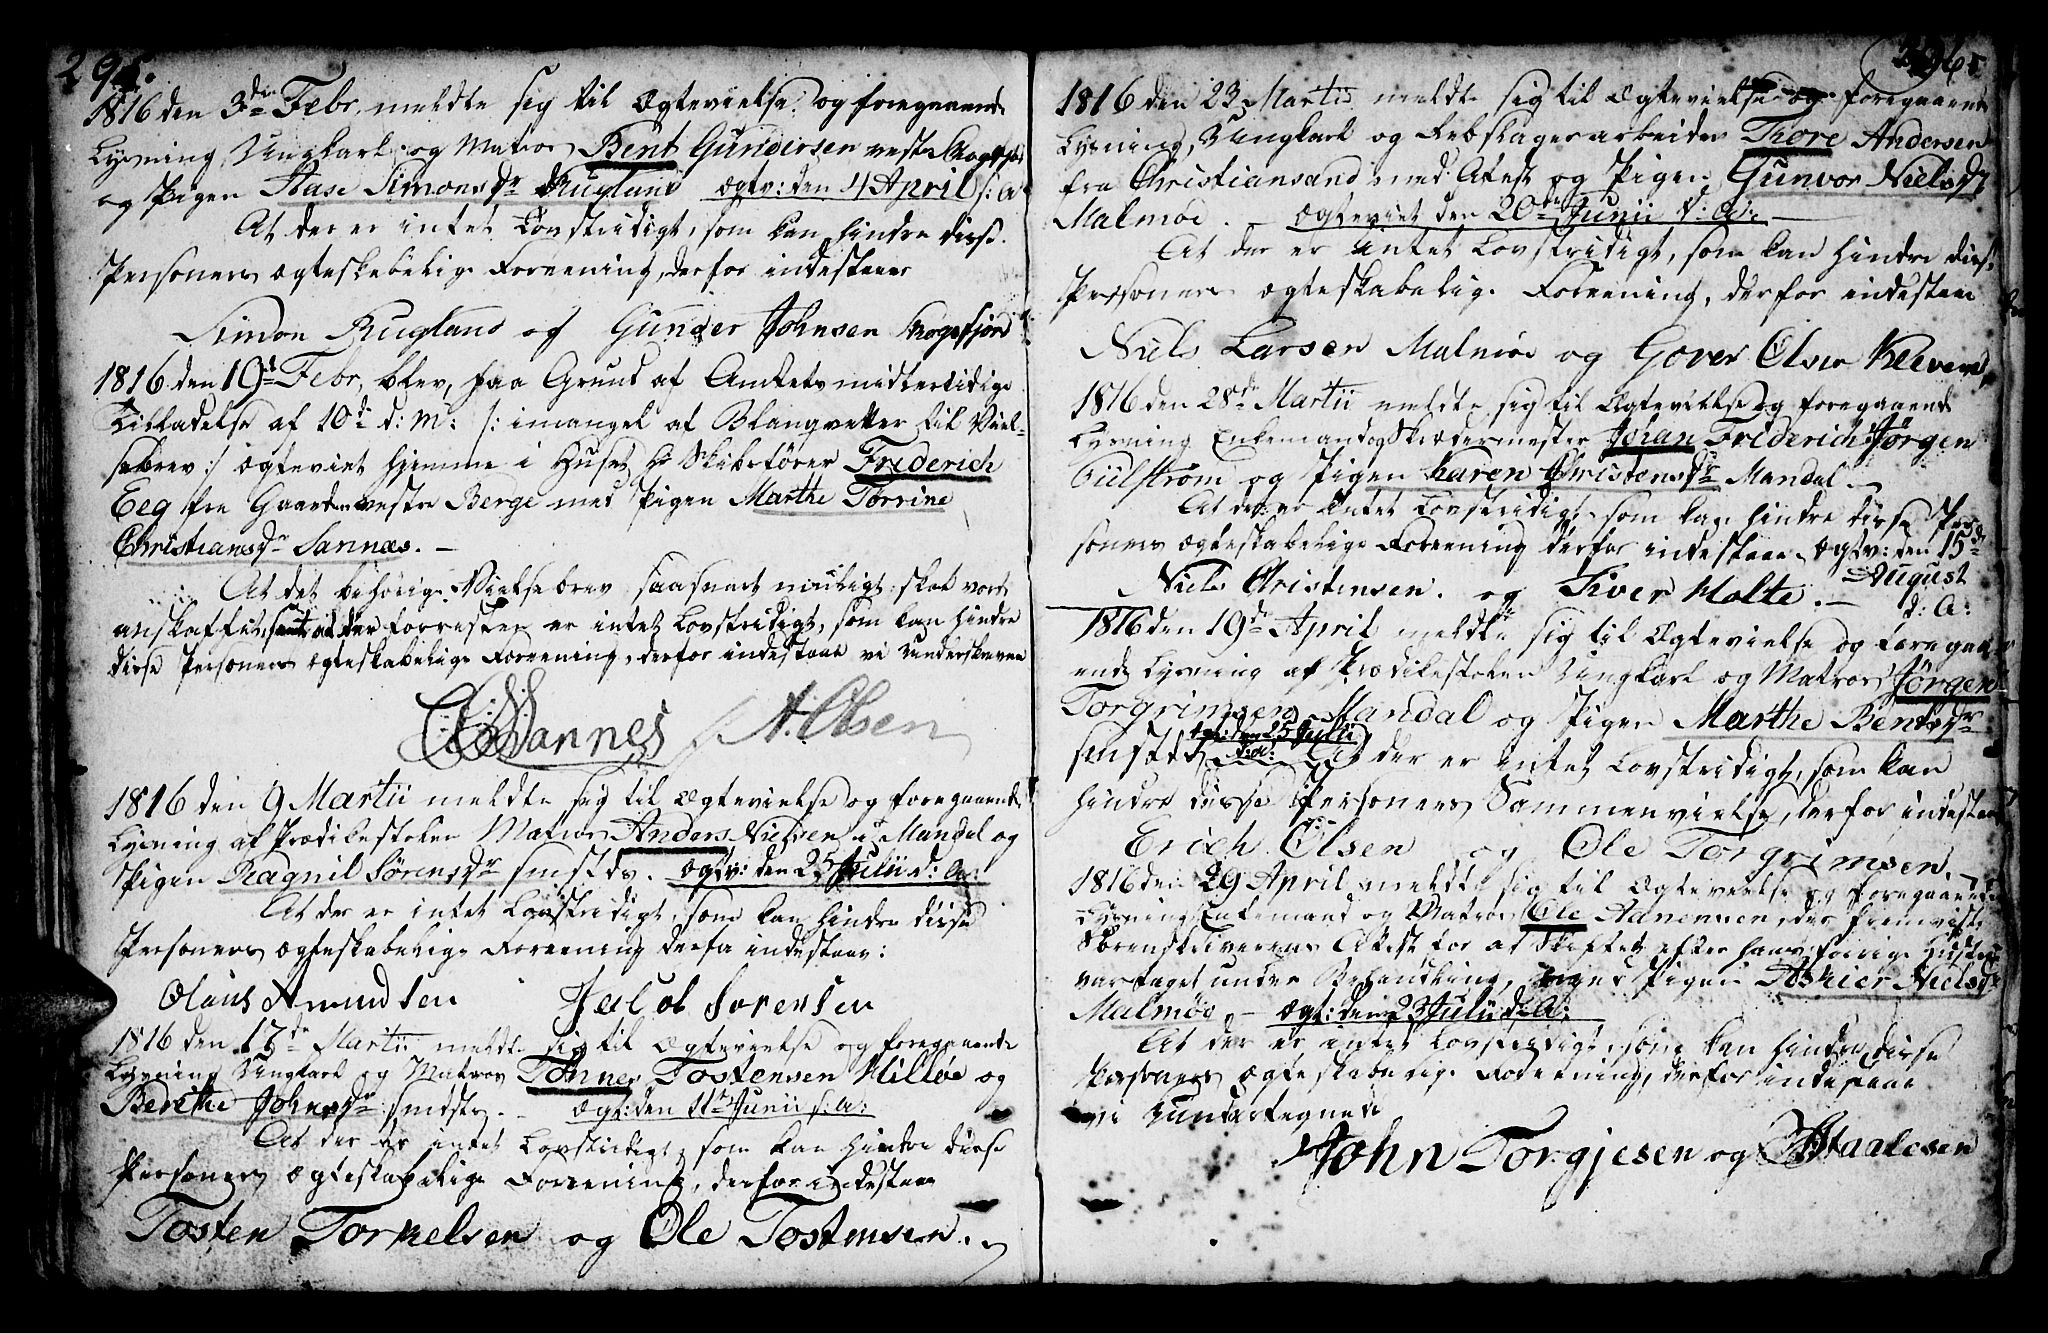 295.
1816 den 3die Febr. meldte sig til Ægtevielse og foregaaende
Lysning, Ungkarl og Matros Bent Gundersen vestr
og Pigen Aase Simonsdr Rugland Ægtv: den 4 April s: A:
At der er intet Lovstridigt, som kan hindre disse
Personers ægteskabelige Foreening, derfor indestaaer
Simon Rugland og Gunder Johnsen Skogsfjord
1816 den 19de Febr. blev, paa Grund af Amtets midlertidige
Tilladelse af 10de d: M: /: i mangel af Blanqvetter til Viel-
sebrev :/ ægteviet hjemme i Huset Hr Skibsfører Friderich
Eeg fra Gaarden vestre Berge med Pigen Marthe Torrine
Christiansdr Sannæs. —
At det behörige Vielsebrev saasnart mueligt skal vorde
anskaffet, samt at der forresten er intet Lovstridigt, som kan hindre
disse Personers ægteskabelige Foreening, derfor indestaae vi Underskrevne
Sannes A. Olsen
1816 den 9 Martii meldte sig til Ægtevielse og foregaaende
Lysning af Prædikestolen Matros Anders Nielsen i Mandal og
Pigen Ragnil Sörensdr smsteds. Ægtv: den 25 Julii d: A:
At der er intet Lovstridigt, som kan hindre disse
Personers ægteskabelige Foreening derfor indestaae:
Olaus Amundsen Jacob Sorensen
1816 den 17de Martii meldte sig til Ægtevielse og foregaaende
Lysning Ungkarl og Matros Tönnes Tostensen Hilløe og
Berethe Johnsdr smdsts. — Ægt: den 11te Junii s: A:
At der er intet Lovstridigt, som kan hindre disse
Personers ægteskabelige Foreening, derfor indestaae
Tosten Torkelsen og Ole Tostensen.
296
1816 den 23 Martii meldte sig til Ægtevielse og foregaaende
Lysning, Ungkarl og Rebslagerarbeider Thore Andersen
fra Christiansand med Atest og Pigen Gunvor Nielsdr
Malmöe. — Ægteviet den 20de Junii s: A: —
At der er intet Lovstridigt, som kan hindre disse
Personers ægteskabelige Foreening, derfor indestaae
Niels Larsen Malmöe og Gover Olsen Kleven
1816 den 28de Martii meldte sig til Ægtevielse og foregaaende
Lysning Enkemand og Skrædermester Johan Friderich Jörgen
og Pigen Karen Christensdr Mandal. —
At der er intet Lovstridigt som kan hindre disse Per-
soners ægteskabelige Foreening derfor indestaae. Ægtv: den 15de
August
Niels Christensen. og Siver Holte. —
d: A:
1816 den 19de April meldte sig til Ægtevielse og foregaa-
ende Lysning af Prædikestolen Ungkarl og Matros Jörgen
Torgrimsen Mandal og Pigen Marthe Bentsdr
smstds den 25 Julii d: a: At der er intet Lovstridigt, som kan
hindre disse Personers Sammenvielse, derfor indestaae
Erich Olsen og Ole Torgrimsen.
1816 den 29 April meldte sig til Ægtevielse og foregaaende
Lysning Enkemand og Matros Ole Aanensen, der fremviste
Sorenskriverens Attest for at Skiftet efter hans forrige Hustru
var taget under Behandling, med Pigen Askier Nielsdr
Malmöe. — Ægt: den 23 Julii d: A:
At der er intet Lovstridigt, som kan hindre disse
Personers ægteskabelige Foreening, derfor indestaae
vi Undertegnede
John Torgjesen og Staalesen